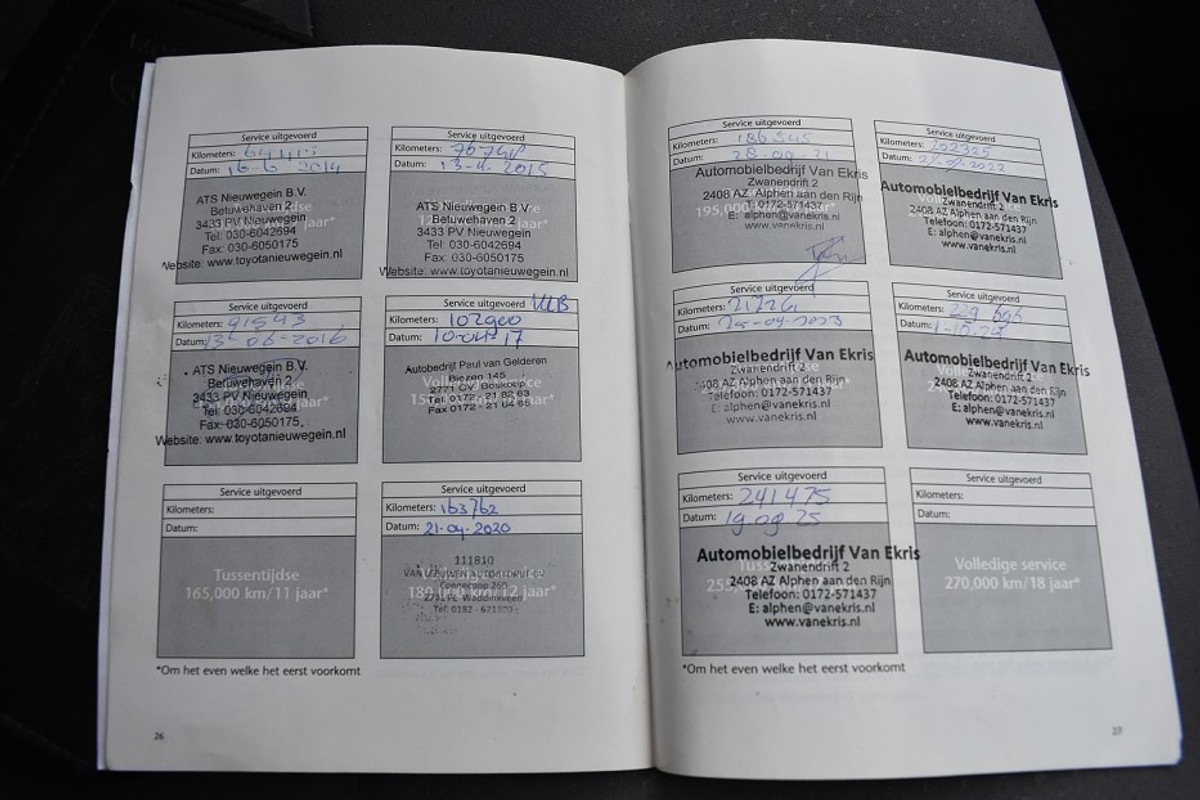 Service uitgevoerd
Kilometers: 64415
Datum: 16-6 2014
ATS Nieuwegein B.V.
Betuwehaven 2
3433 PV Nieuwegein
Tel: 030-6042694
Fax: 030-6050175
Website: www.toyotanieuwegein.nl
Service uitgevoerd
Kilometers:
Datum: 13-4-2015
ATS Nieuwegein B.V.
Betuwehaven 2
3433 PV Nieuwegein
Tel: 030-6042694
Fax: 030-6050175
Website: www.toyotanieuwegein.nl
Service uitgevoerd
Kilometers: 91543
Datum: 13-06-2016
ATS Nieuwegein B.V.
Betuwehaven 2
3433 PV Nieuwegein
Tel: 030-6042694
Fax: 030-6050175
Website: www.toyotanieuwegein.nl
Service uitgevoerd
Kilometers: 102900
Datum: 10-04-17
Autobedrijf Paul van Gelderen
Biezen 145
2771 CV Boskoop
Tel. 0172 - 21 82 63
Fax 0172 - 21 04 65
Service uitgevoerd
Kilometers:
Datum:
Tussentijdse
165,000 km/11 jaar*
Service uitgevoerd
Kilometers: 163762
Datum: 21-04-2020
111810
180,000 km/12 jaar*
Waddinxveen
Tel: 0182 -
*Om het even welke het eerst voorkomt
26
Service uitgevoerd
Kilometers: 186545
Datum: 28-09-21
Automobielbedrijf Van Ekris
Zwanendrift 2
2408 AZ Alphen aan den Rijn
195,000 T: 0172-571437
E: alphen@vanekris.nl
www.vanekris.nl
Service uitgevoerd
Kilometers: 202325
Datum: 2022
Automobielbedrijf Van Ekris
Zwanendrift 2
2408 AZ Alphen aan den Rijn
Telefoon: 0172-571437
E: alphen@vanekris.nl
www.vanekris.nl
Service uitgevoerd
Kilometers:
Datum: 25-09-2023
Automobielbedrijf Van Ekris
Zwanendrift 2
2408 AZ Alphen aan den Rijn
Telefoon: 0172-571437
E: alphen@vanekris.nl
www.vanekris.nl
Service uitgevoerd
Kilometers: 229
Datum: 1-10-24
Automobielbedrijf Van Ekris
Zwanendrift 2
2408 AZ Alphen aan den Rijn
Telefoon: 0172-571437
E: alphen@vanekris.nl
www.vanekris.nl
Service uitgevoerd
Kilometers: 241475
Datum: 19-09-25
Automobielbedrijf Van Ekris
Zwanendrift 2
2408 AZ Alphen aan den Rijn
Telefoon: 0172-571437
E: alphen@vanekris.nl
www.vanekris.nl
Service uitgevoerd
Kilometers:
Datum:
Volledige service
270,000 km/18 jaar*
*Om het even welke het eerst voorkomt
27